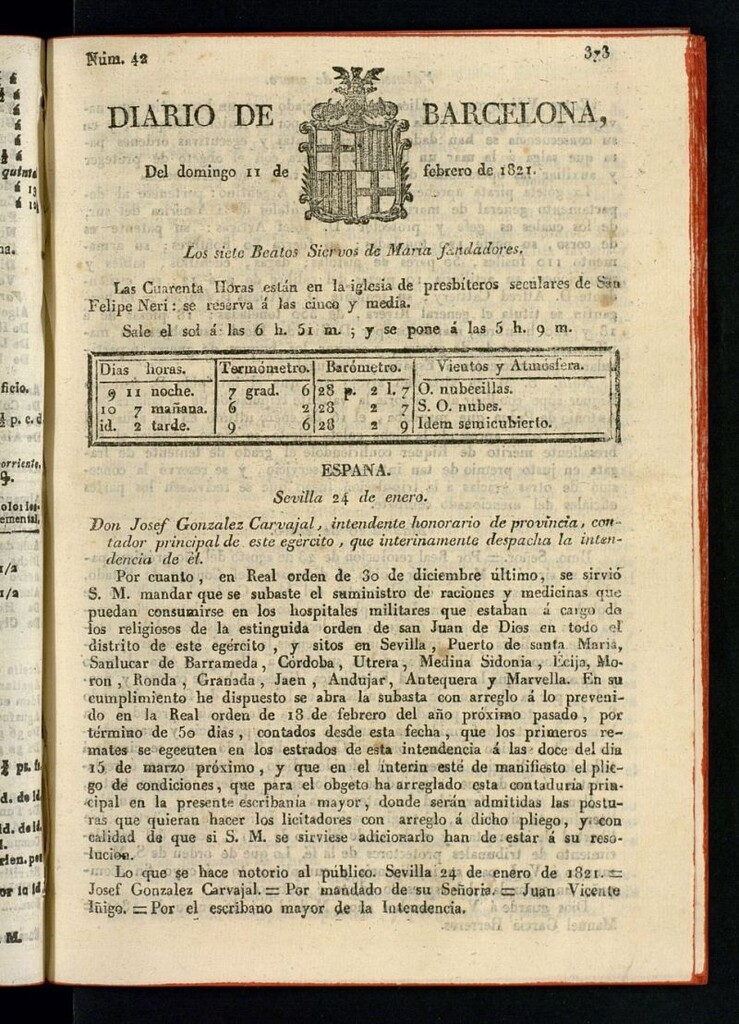 Núm. 42
DIARIO DE BARCELONA,
Del domingo 11 de febrero de 1821.
Los siete Beatos Siervos de Maria fundadores.
Las Cuarenta Horas están en la iglesia de presbíteros seculares de San
Felipe Neri: se reserva á las cinco y media.
Sale el sol á las 6 h. 51 m. ; y se pone á las 5 h. 9 m.
Dias horas. Termómetro. Barómetro. Vientos y Atmósfera.
9 11 noche. 7 grad. 6 28 p. 2 l. 7 O. nubecillas.
10 7 mañana. 6 2 28 2 7 S. O. nubes.
id. 2 tarde. 9 6 28 2 9 Idem semicubierto.
ESPAÑA.
Sevilla 24 de enero.
Don Josef Gonzalez Carvajal, intendente honorario de provincia, con-
tador principal de este egército, que interinamente despacha la inten-
dencia de él.
Por cuanto, en Real orden de 30 de diciembre último, se sirvió
S. M. mandar que se subaste el suministro de raciones y medicinas que
puedan consumirse en los hospitales militares que estaban á cargo de
los religiosos de la estinguida orden de san Juan de Dios en todo el
distrito de este egército, y sitos en Sevilla, Puerto de santa Maria,
Sanlucar de Barrameda, Córdoba, Utrera, Medina Sidonia, Ecija, Mo-
ron, Ronda, Granada, Jaen, Andujar, Antequera y Marvella. En su
cumplimiento he dispuesto se abra la subasta con arreglo á lo preveni-
do en la Real orden de 18 de febrero del año próximo pasado, por
término de 50 dias, contados desde esta fecha, que los primeros re-
mates se egecuten en los estrados de esta intendencia á las doce del dia
15 de marzo próximo, y que en el ínterin esté de manifiesto el plie-
go de condiciones, que para el obgeto ha arreglado esta contaduría prin-
cipal en la presente escribanía mayor, donde serán admitidas las postu-
ras que quieran hacer los licitadores con arreglo á dicho pliego, y con
calidad de que si S. M. se sirviese adicionarlo han de estar á su reso-
lucion.
Lo que se hace notorio al público. Sevilla 24 de enero de 1821. =
Josef Gonzalez Carvajal. = Por mandado de su Señoría. = Juan Vicente
Iñigo. = Por el escribano mayor de la Intendencia.